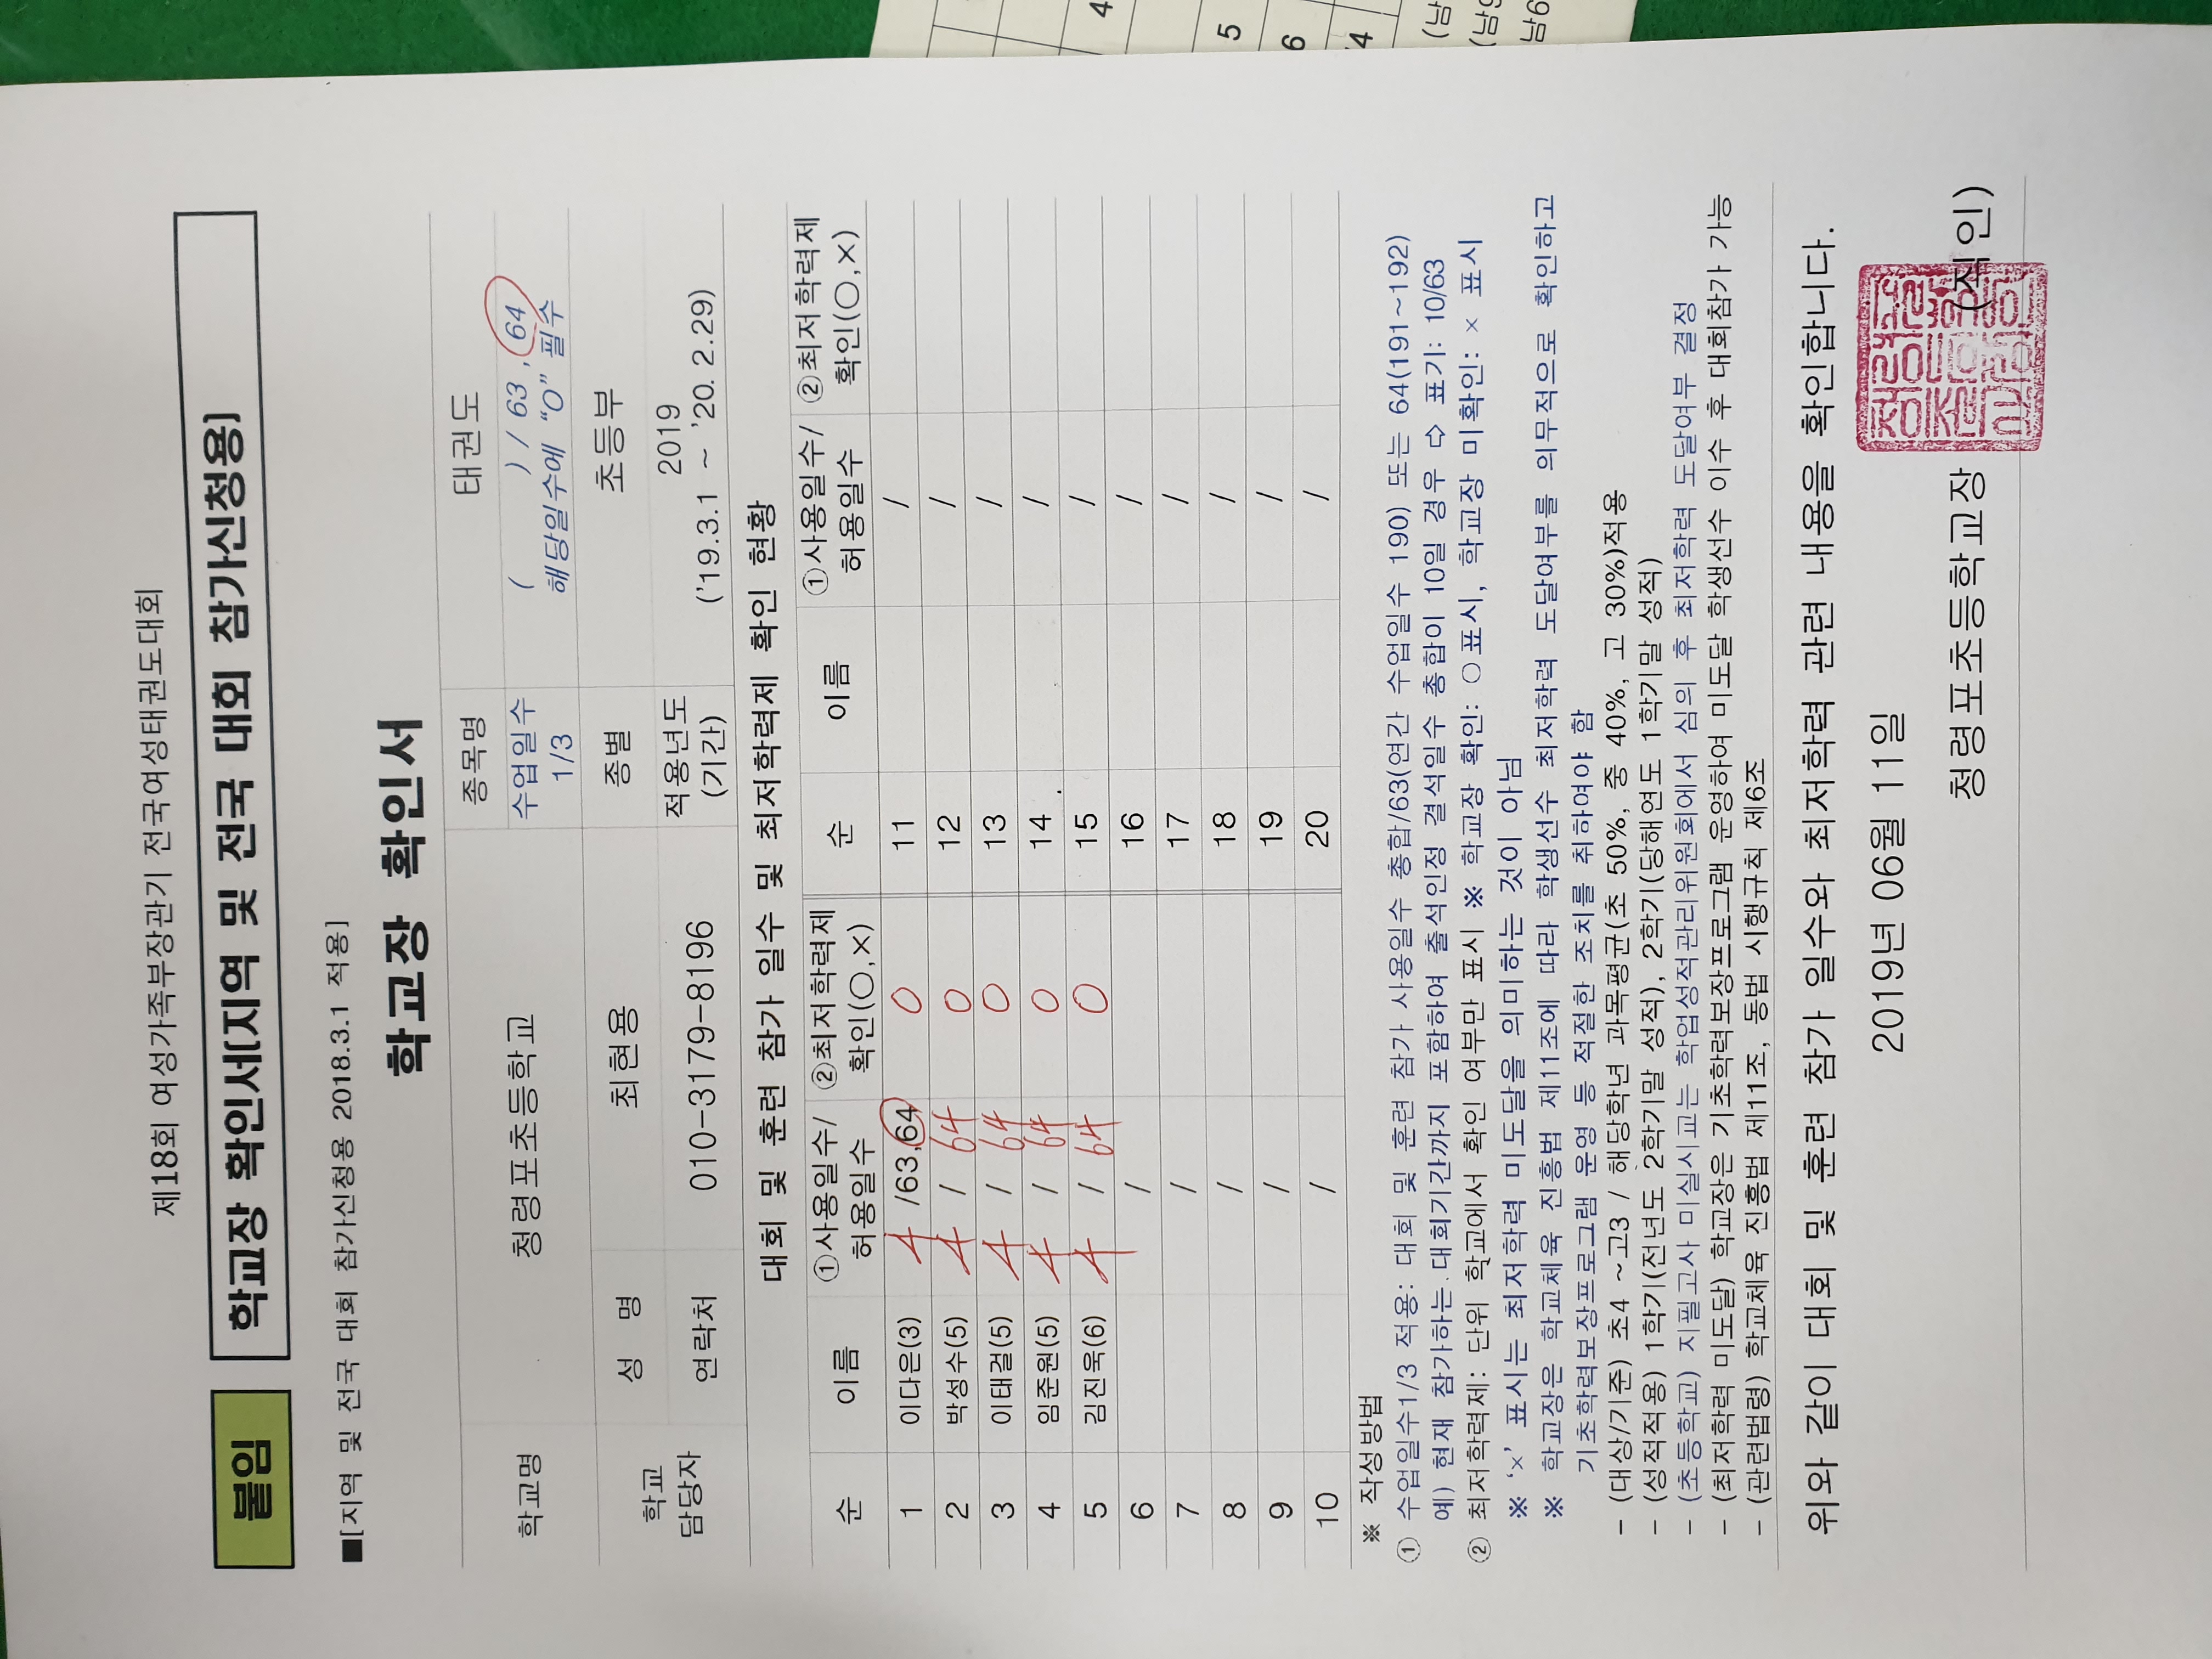 제18회 여성가족부장관기 전국여성태권도대회
붙임 학교장 확인서(지역 및 전국 대회 참가신청용)
■[지역 및 전국 대회 참가신청용 2018.3.1 적용]
학교장 확인서
학교명 청령포초등학교 종목명 태권도
수업일수 1/3 ( ) / 63 , 64
해당일수에 "O" 필수
학교 담당자 성 명 최현용 종별 초등부
연락처 010-3179-8196 적용년도 (기간) 2019
('19.3.1 ~ '20. 2.29)
대회 및 훈련 참가 일수 및 최저학력제 확인 현황
순 이름 ①사용일수/허용일수 ②최저학력제 확인(○,×) 순 이름 ①사용일수/허용일수 ②최저학력제 확인(○,×)
1 이다은(3) 4 /63,64 O 11 /
2 박성수(5) 4 / 64 O 12 /
3 이태걸(5) 4 / 64 O 13 /
4 임준원(5) 4 / 64 O 14 /
5 김진욱(6) 4 / 64 O 15 /
6 / 16 /
7 / 17 /
8 / 18 /
9 / 19 /
10 / 20 /
※ 작성방법
① 수업일수1/3 적용: 대회 및 훈련 참가 사용일수 총합/63(연간 수업일수 190) 또는 64(191~192)
예) 현재 참가하는 대회기간까지 포함하여 출석인정 결석일수 총합이 10일 경우 ⇨ 표기: 10/63
② 최저학력제: 단위 학교에서 확인 여부만 표시 ※ 학교장 확인: ○표시, 학교장 미확인: × 표시
※ '×' 표시는 최저학력 미도달을 의미하는 것이 아님
※ 학교장은 학교체육 진흥법 제11조에 따라 학생선수 최저학력 도달여부를 의무적으로 확인하고
기초학력보장프로그램 운영 등 적절한 조치를 취하여야 함
- (대상/기준) 초4 ~고3 / 해당학년 과목평균(초 50%, 중 40%, 고 30%)적용
- (성적적용) 1학기(전년도 2학기말 성적), 2학기(당해연도 1학기말 성적)
- (초등학교) 지필고사 미실시교는 학업성적관리위원회에서 심의 후 최저학력 도달여부 결정
- (최저학력 미도달) 학교장은 기초학력보장프로그램 운영하여 미도달 학생선수 이수 후 대회참가 가능
- (관련법령) 학교체육 진흥법 제11조, 동법 시행규칙 제6조
위와 같이 대회 및 훈련 참가 일수와 최저학력 관련 내용을 확인합니다.
2019년 06월 11일
청령포초등학교장 (직인)
4
5
6
4
(남
(남9
남6